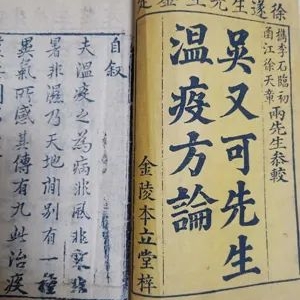 檇李石臨初
甬江徐天章
兩先生叅較
吳又可先生
溫疫方論
金陵本立堂梓
自叙
夫溫疫之為病非風非寒非
暑非濕乃天地間别有一種
異氣所感其傳有九此治疫